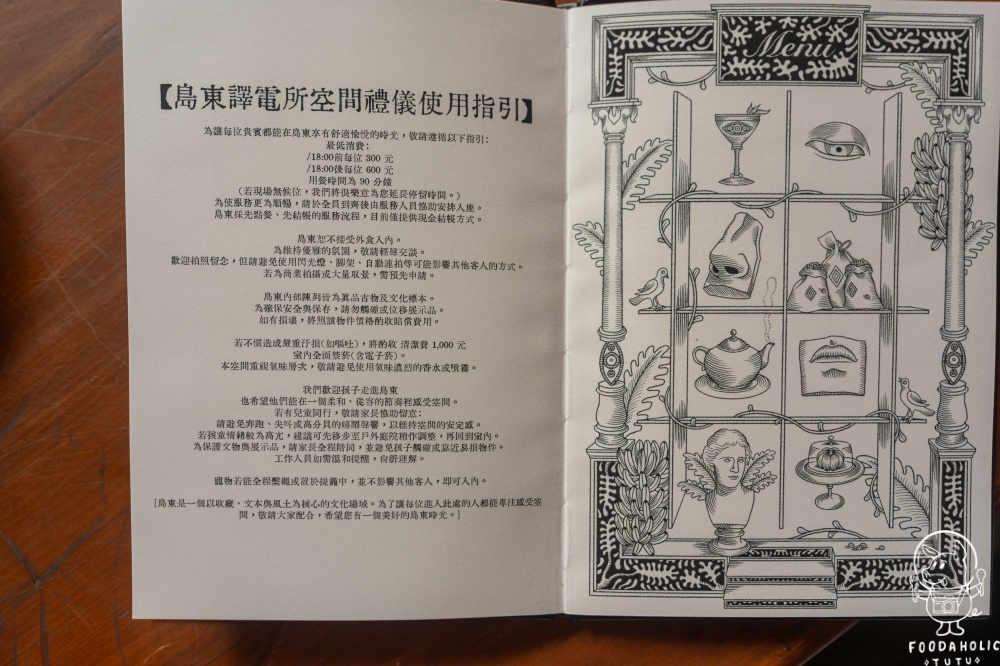 【島東譯電所空間禮儀使用指引】
為讓每位貴賓都能在島東享有舒適愉悅的時光，敬請遵循以下指引：
最低消費：
/18:00前每位 300 元
/18:00後每位 600 元
用餐時間為 90 分鐘
（若現場無候位，我們將很樂意為您延長停留時間。）
為使服務更為順暢，請於全員到齊後由服務人員協助安排入座。
島東採先點餐、先結帳的服務流程，目前僅提供現金結帳方式。
島東恕不接受外食入內。
為維持優雅的氛圍，敬請輕聲交談。
歡迎拍照留念，但請避免使用閃光燈、腳架、自動連拍等可能影響其他客人的方式。
若為商業拍攝或大量取景，需預先申請。
島東內部陳列皆為真品古物及文化標本。
為確保安全與保存，請勿觸碰或位移展示品。
如有損壞，將照該物件價格酌收賠償費用。
若不慎造成嚴重汙損(如嘔吐)，將酌收 清潔費 1,000 元
室內全面禁菸(含電子菸)。
本空間重視氣味層次，敬請避免使用氣味濃烈的香水或噴霧。
我們歡迎孩子走進島東
也希望他們能在一個柔和、從容的節奏裡感受空間。
若有兒童同行，敬請家長協助留意：
請避免奔跑、尖叫或高分貝的嬉鬧聲響，以維持空間的安定感。
若孩童情緒較為高亢，建議可先移步至戶外庭院稍作調整，再回到室內。
為保護文物與展示品，請家長全程陪同，並避免孩子觸碰或靠近易損物件。
工作人員如需溫和提醒，尚祈理解。
寵物若能全程繫繩或置於提籠中，並不影響其他客人，即可入內。
［島東是一個以收藏、文本與風土為核心的文化場域。為了讓每位進入此處的人都能專注感受空
間，敬請大家配合，希望您有一個美好的島東時光。］
Menu
FOODAHOLIC
TUTU